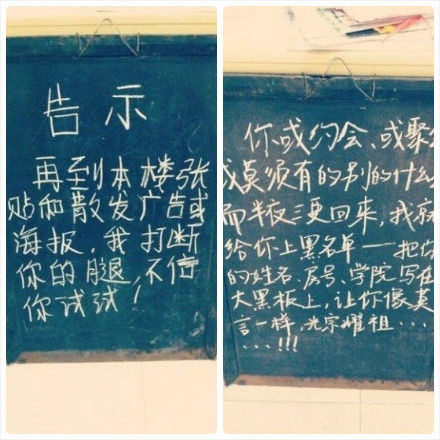 告示
再到本楼张
贴和散发广告或
海报，我打断
你的腿，不信
你试试！
你或约会、或聚
或莫须有的别的什
而半夜三更回来，我就
给你上黑名单——把你
的姓名、房号、学院写在
大黑板上，让你像莫
言一样，光宗耀祖...
...!!!